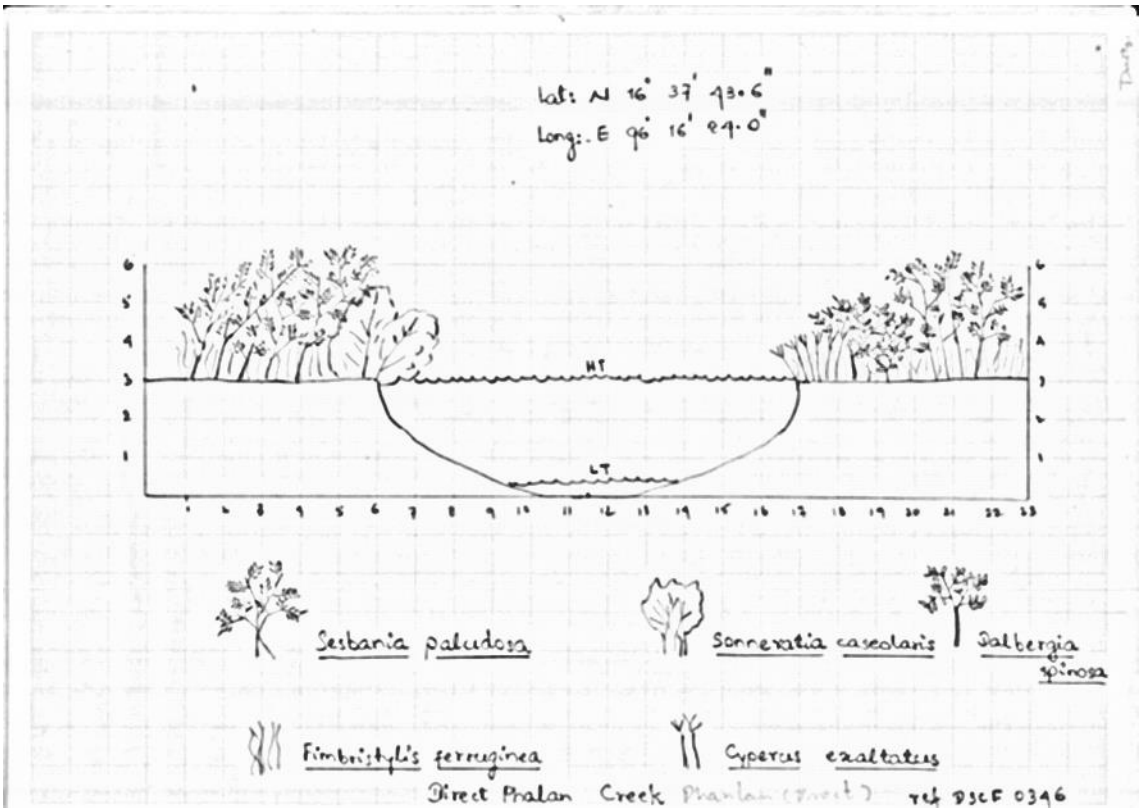 Lat: N 16° 37' 43.6"
Long: E 96° 16' 24.0"
6 6
5 5
4 4
3 HT 3
2 2
1 LT 1
1 2 3 4 5 6 7 8 9 10 11 12 13 14 15 16 17 18 19 20 21 22 23
Sesbania paludosa
Sonneratia caseolaris
Dalbergia
spinosa
Fimbristylis ferruginea
Cyperus exaltatus
Direct Phalan Creek Phanlan (Direct) ref DSCF 0346